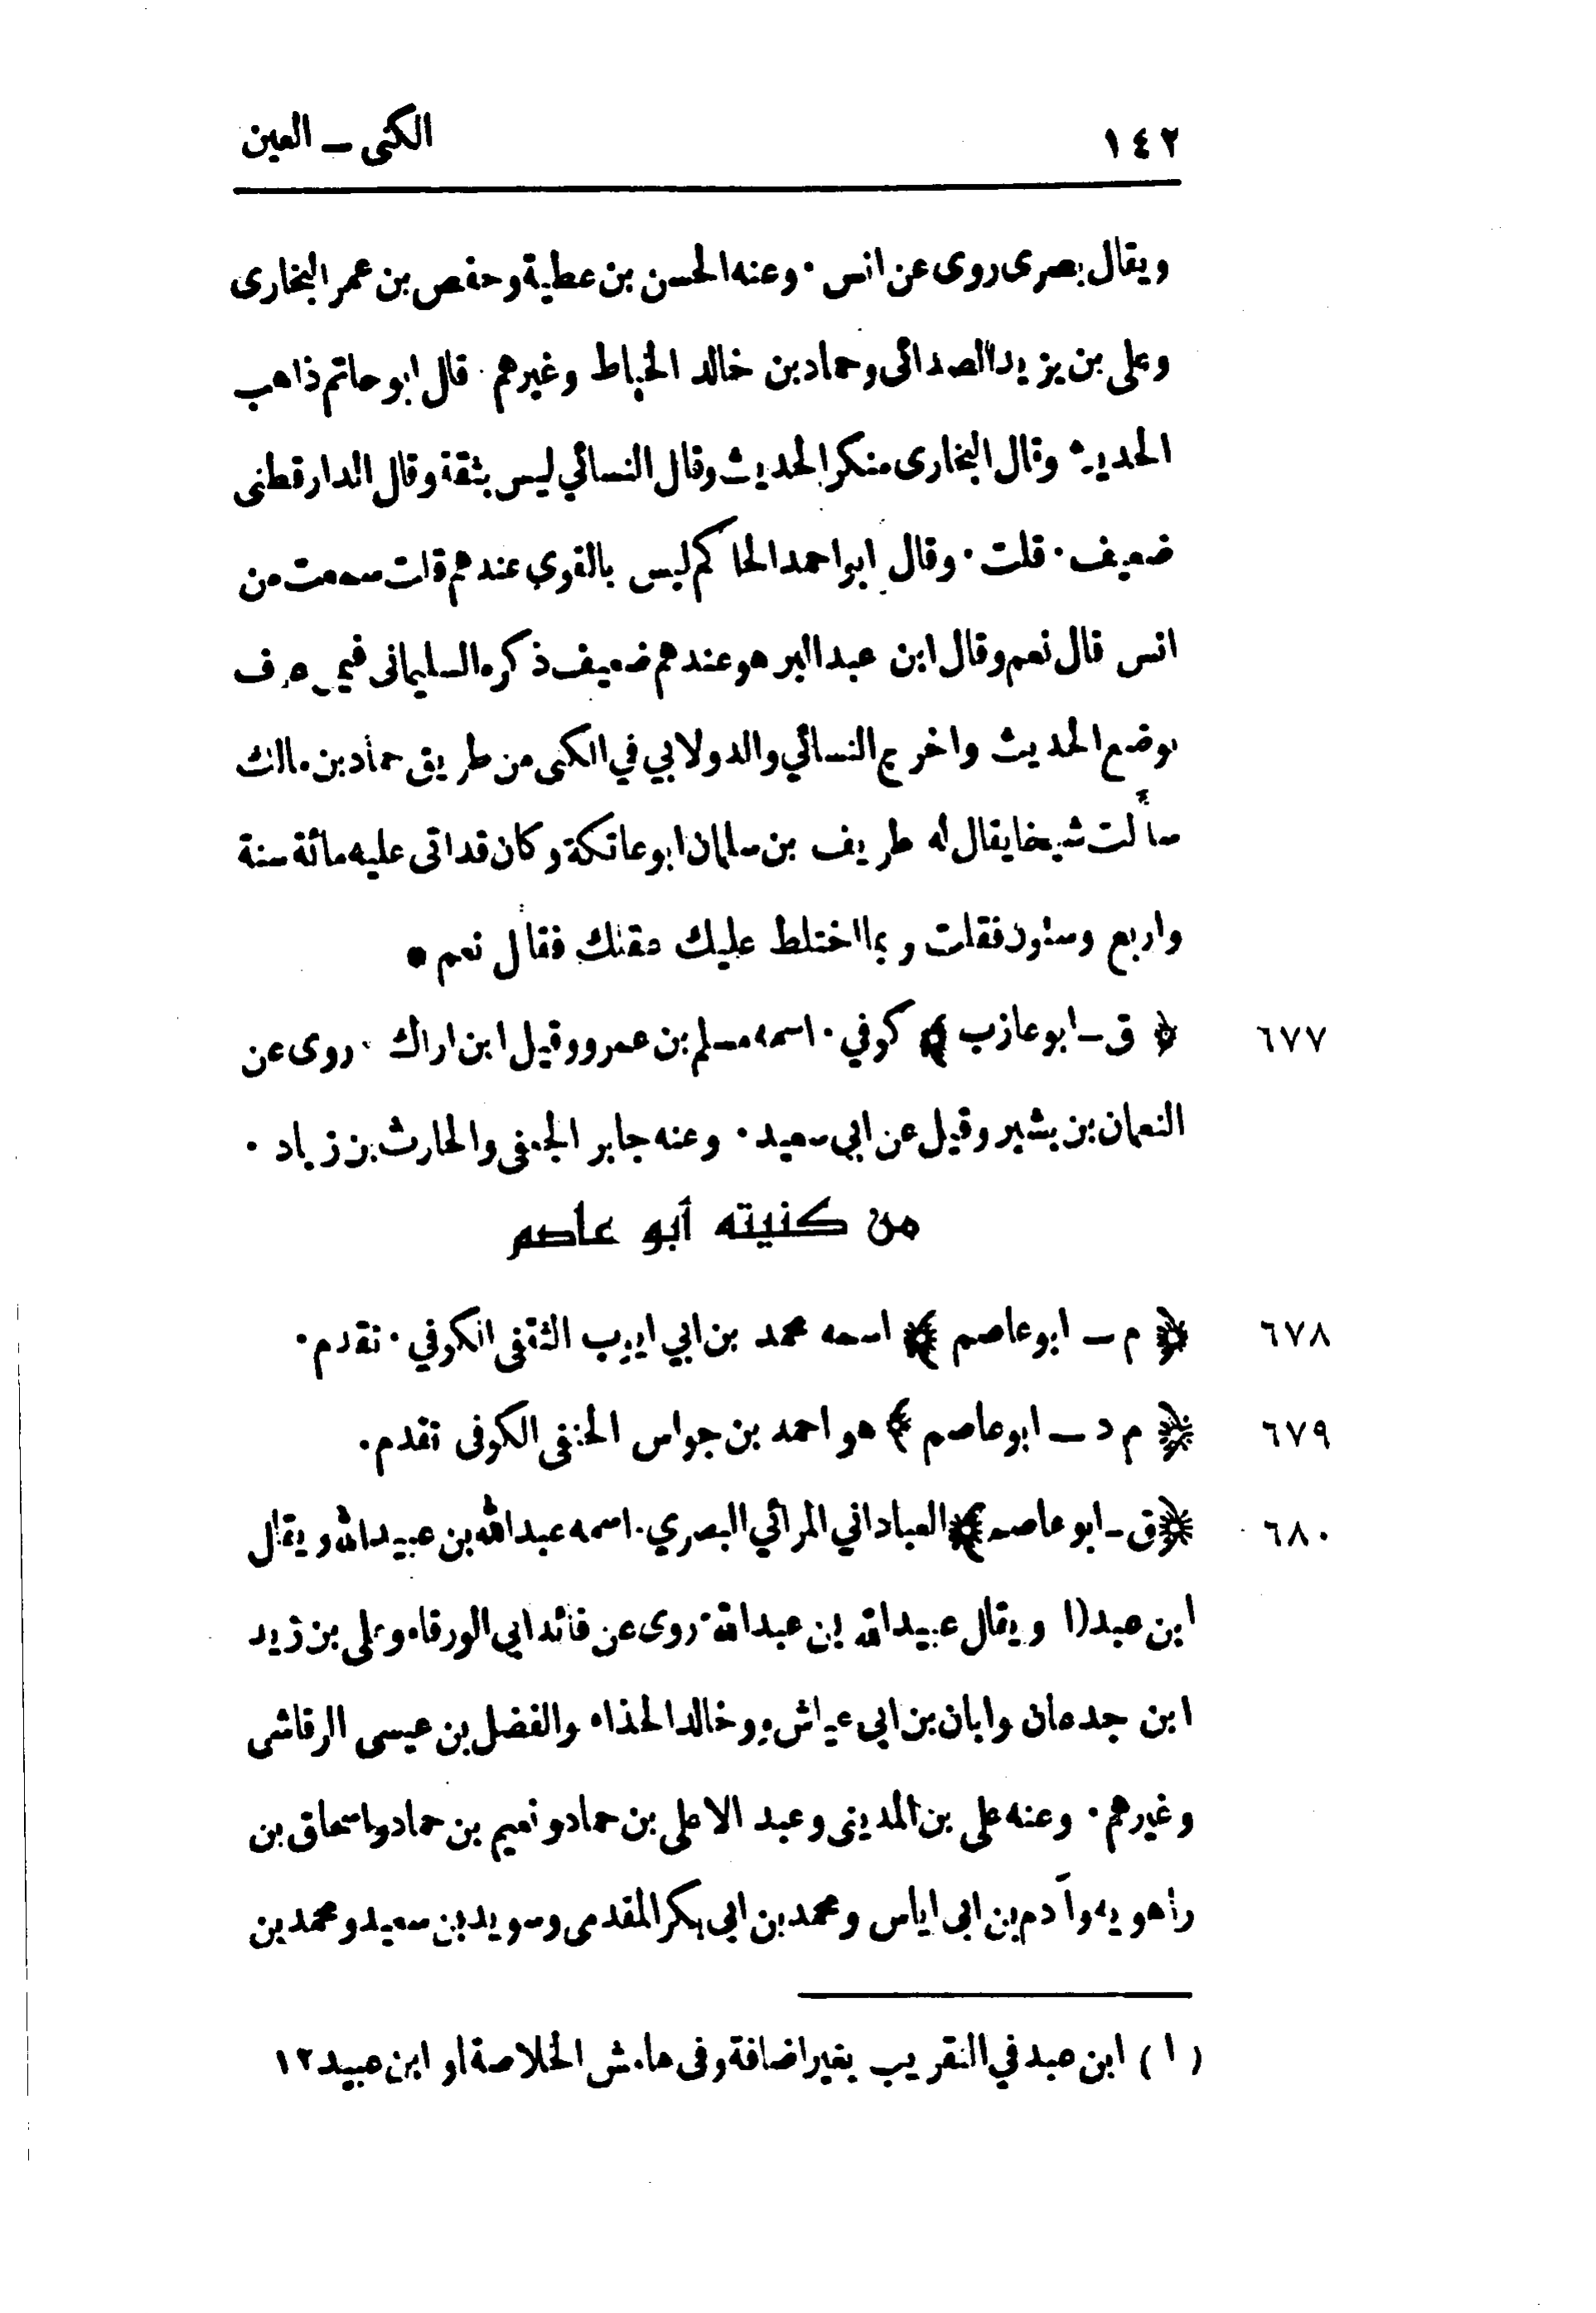 ١٤٢ الكنى ـ العين
ويقال بصرى روى عن انس ٠ وعنه الحسن بن عطية وحفص بن عمر البخارى
وعلى بن يزيد الصدائى وحماد بن خالد الخياط وغيرهم ٠ قال ابو حاتم ذاهب
الحديث وقال البخارى منكر الحديث وقال النسائي ليس بثقة وقال الدارقطنى
ضعيف ٠ قلت ٠ وقال ابو احمد الحاكم ليس بالقوي عندهم قلت سمعت من
انس قال نعم وقال ابن عبد البر هو عندهم ضعيف ذكره السليمانى فيمن عرف
بوضع الحديث واخرج النسائي والدولابي في الكنى من طريق حماد بن مالك
سألت شيخا يقال له طريف بن سلمان ابو عاتكة وكان قد اتى عليه مائة سنة
واربع وستون فقلت ربما اختلط عليك عقلك فقال نعم ●
٦٧٧ ﴿ ق ـ ابو عازب ﴾ كوفي ٠ اسمه مسلم بن عمرو وقيل ابن اراك ٠ روى عن
النعمان بن بشير وقيل عن ابي سعيد ٠ وعنه جابر الجعفى والحارث بن زياد ٠
من كنيته أبو عاصم
٦٧٨ ﴿ م ـ ابو عاصم ﴾ اسمه محمد بن ابي ايوب الثقفى الكوفي ٠ تقدم ٠
٦٧٩ ﴿ م د ـ ابو عاصم ﴾ هو احمد بن جواس الحنفى الكوفى تقدم ٠
٦٨٠ ﴿ ق ـ ابو عاصم ﴾ العباداني المرائي البصري ٠ اسمه عبد الله بن عبيد الله ويقال
ابن عبد (١ ويقال عبيد الله بن عبد الله ٠ روى عن فائد ابي الورقاء وعلى بن زيد
ابن جدعان وابان بن ابي عياش وخالد الحذاء والفضل بن عيسى الرقاشى
وغيرهم ٠ وعنه على بن المدينى وعبد الاعلى بن حماد ونعيم بن حماد واسحاق بن
راهويه وآدم بن ابى اياس ومحمد بن ابى بكر المقدمى وسويد بن سعيد ومحمد بن
(١) ابن عبد في التقريب بغير اضافة وفى هامش الخلاصة او ابن عبيد ١٢